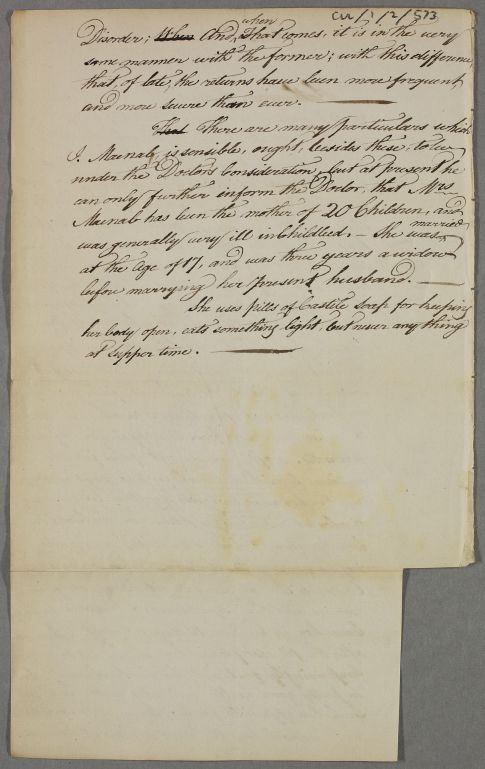 CUL/1/2/573
when
Disorder; When And, that comes, it is in the very
same manner with the former; with this difference
that, of late, the returns have been more frequent,
and more severe than ever. —
That There are many particulars which
J. Macnab, is sensible, ought, besides these, to be
under the Doctors Consideration, but at present he
can only further inform the Doctor, that Mrs
Macnab has been the mother of 20 Children, and
was generally very ill in Childbed. – She was married
at the Age of 17, and was three years a widow
before marrying her present husband. —
She uses pills of Castile Soap for keeping
her body open, eats something light, but never any thing
at Supper time. —